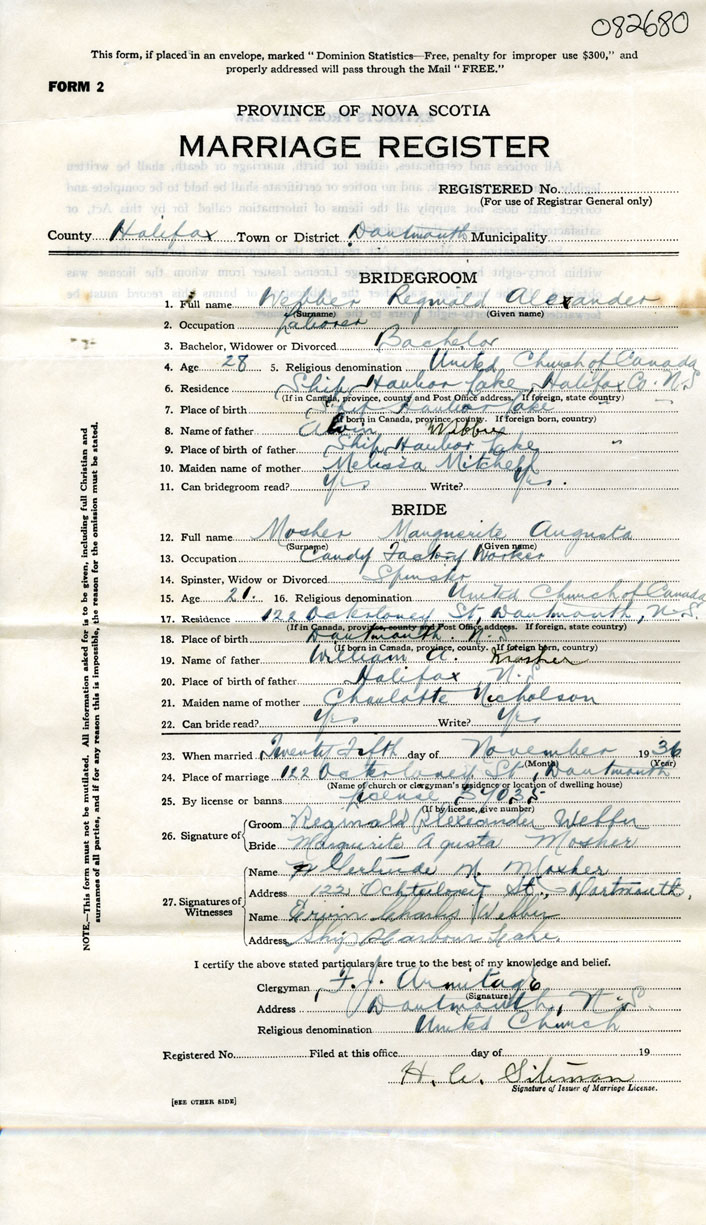 082680
This form, if placed in an envelope, marked " Dominion Statistics—Free, penalty for improper use $300," and
properly addressed will pass through the Mail " FREE."
FORM 2
PROVINCE OF NOVA SCOTIA
MARRIAGE REGISTER
REGISTERED No.
(For use of Registrar General only)
County Halifax Town or District Dartmouth Municipality
BRIDEGROOM
1. Full name Webber Reginald Alexander
(Surname) (Given name)
2. Occupation Laborer
3. Bachelor, Widower or Divorced Bachelor
4. Age 28 5. Religious denomination United Church of Canada
6. Residence Ship Harbor Lake, Halifax Co. N.S
(If in Canada, province, county and Post Office address. If foreign, state country)
7. Place of birth Ship Harbor Lake
(If born in Canada, province, county. If foreign born, country)
8. Name of father Alvin
9. Place of birth of father Ship Harbor Lake
10. Maiden name of mother Melissa Mitchell
11. Can bridegroom read? Yes Write? Yes.
BRIDE
12. Full name Mosher Marguerite Augusta
(Surname) (Given name)
13. Occupation Candy Factory Worker
14. Spinster, Widow or Divorced Spinster
15. Age 21. 16. Religious denomination United Church of Canada
17. Residence 122 Ochterloney St, Dartmouth, N.S.
(If in Canada, province, county or Post Office address. If foreign, state country)
18. Place of birth Dartmouth. N.S.
(If born in Canada, province, county. If foreign born, country)
19. Name of father William A. Mosher
20. Place of birth of father Halifax N.S.
21. Maiden name of mother Charlotte Nicholson
22. Can bride read? Yes Write? Yes
23. When married Twenty Fifth day of November 1936
(Month) (Year)
24. Place of marriage 122 Ochterloney St, Dartmouth
(Name of church or clergyman's residence or location of dwelling house)
25. By license or banns License
(If by license, give number)
26. Signature of
Groom Reginald Alexander Webber
Bride Marguerite Agusta Mosher
27. Signatures of Witnesses
Name Gertrude M. Mosher
Address 122 Ochterloney St., Dartmouth.
Name Ervin Charles Webber
Address Ship Harbour Lake.
I certify the above stated particulars are true to the best of my knowledge and belief.
Clergyman F. J. Armitage
(Signature)
Address Dartmouth, N.S.
Religious denomination United Church
Registered No. Filed at this office day of 19
H.
Signature of Issuer of Marriage License.
[SEE OTHER SIDE]
NOTE.—This form must not be mutilated. All information asked for is to be given, including full Christian and
surnames of all parties, and if for any reason this is impossible, the reason for the omission must be stated.